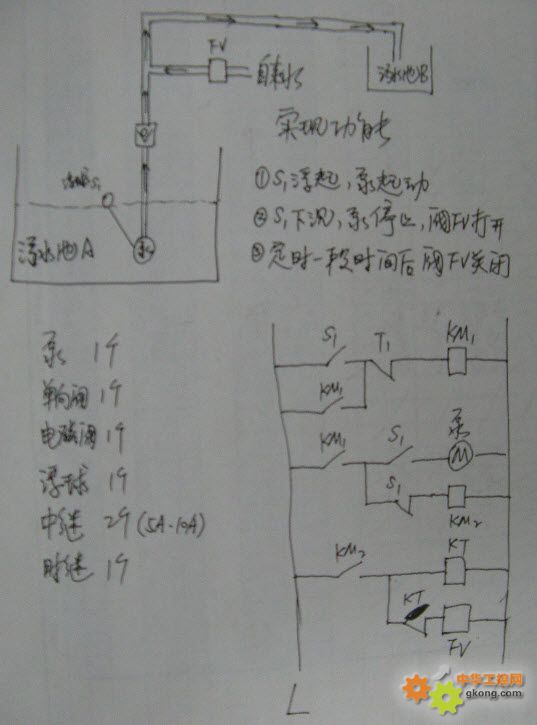 FV
自来水
污水池B
浮球S₁
泵
污水池A
实现功能
①S₁浮起,泵起动
②S₁下沉,泵停止,阀FV打开
③定时一段时间后阀FV关闭
泵 1个
单向阀 1个
电磁阀 1个
浮球 1个
中继 2个(5A-10A)
时继 1个
S₁ T₁ KM₁
KM₁
KM₁ S₁ 泵
M
S₁
KM₂
KM₂ KT
KT
FV
L
中华工控网
gkong.com